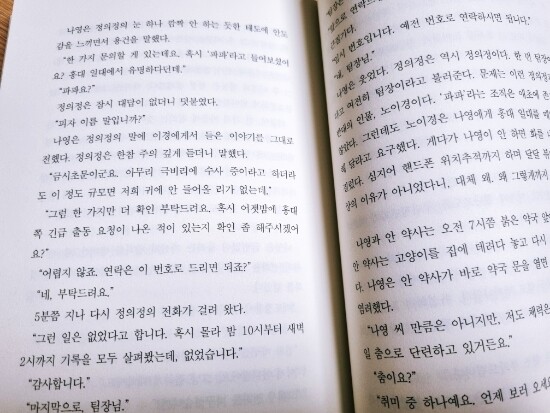 나영은 정의정의 눈 하나 깜짝 안 하는 듯한 태도에 안도
감을 느끼면서 용건을 말했다.
"한 가지 문의할 게 있는데요. 혹시 '파파'라고 들어보셨어
요? 홍대 일대에서 유명하다던데."
"파파요?"
정의정은 잠시 대답이 없더니 덧붙였다.
"피자 이름 말입니까?"
나영은 정의정의 말에 이경에게서 들은 이야기를 그대로
전했다. 정의정은 한참 주의 깊게 듣더니 말했다.
"금시초문이군요. 아무리 극비리에 수사 중이라고 하더라
도 이 정도 규모면 저희 귀에 안 들어올 리가 없는데."
"그럼 한 가지만 더 확인 부탁드려요. 혹시 어젯밤에 홍대
쪽 긴급 출동 요청이 나온 적이 있는지 확인 좀 해주시겠어
요?"
"어렵지 않죠. 연락은 이 번호로 드리면 되죠?"
"네, 부탁드려요."
5분쯤 지나 다시 정의정의 전화가 걸려 왔다.
"그런 일은 없었다고 합니다. 혹시 몰라 밤 10시부터 새벽
2시까지 기록을 모두 살펴봤는데, 없었습니다."
"감사합니다."
"마지막으로, 팀장님."
번호입니다. 예전 번호로 연락하시면 됩니다."
"네, 팀장님."
나영은 웃었다. 정의정은 역시 정의정이다. 한 번 팀장이
다고 여전히 팀장이라고 불러준다. 문제는 이런 정의정
한대의 인물, 노이경이다. '파파'라는 조직은 애초에 존
않았다. 그런데도 노이경은 나영에게 홍대 일대를
해 달라고 요구했다. 게다가 나영이 안 하면 화를
질렀다. 심지어 핸드폰 위치추적까지 하며 달달
상의 이유가 아니었다니, 대체 왜. 왜 그렇게까지
나영과 안 약사는 오전 7시쯤 붉은 약국 앞
안 약사는 고양이를 집에 데려다 놓고 다시
다. 나영은 안 약사가 바로 약국 문을 열면
염려했다.
"나영 씨 만큼은 아니지만, 저도 체력은
일 춤으로 단련하고 있거든요."
"춤이요?"
"취미 중 하나예요. 언제 보러 오세요